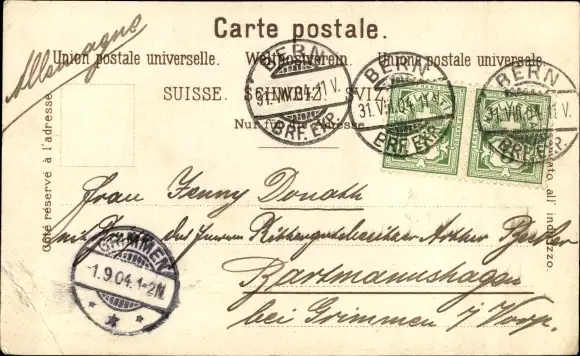 Carte postale.
Allemagne
Union postale universelle. Weltpostverein. Unione postale universale.
SUISSE. SCHWEIZ. SVIZ
Nur für
Côté réservé à l'adresse.
BERN
31.VIII.04. 11 V.
BRF. EXP.
BERN
31.VIII.04. 11 V.
BRF. EXP.
BERN
31.VIII.04. 11 V.
BRF. EXP.
HELVETIA
Frau Jenny Donath
des Herrn Rittergutsbesitzer Arthur Becker
Bartmannshagen
bei Grimmen i/Vorp.
GRIMMEN
1.9.04.1-2N.